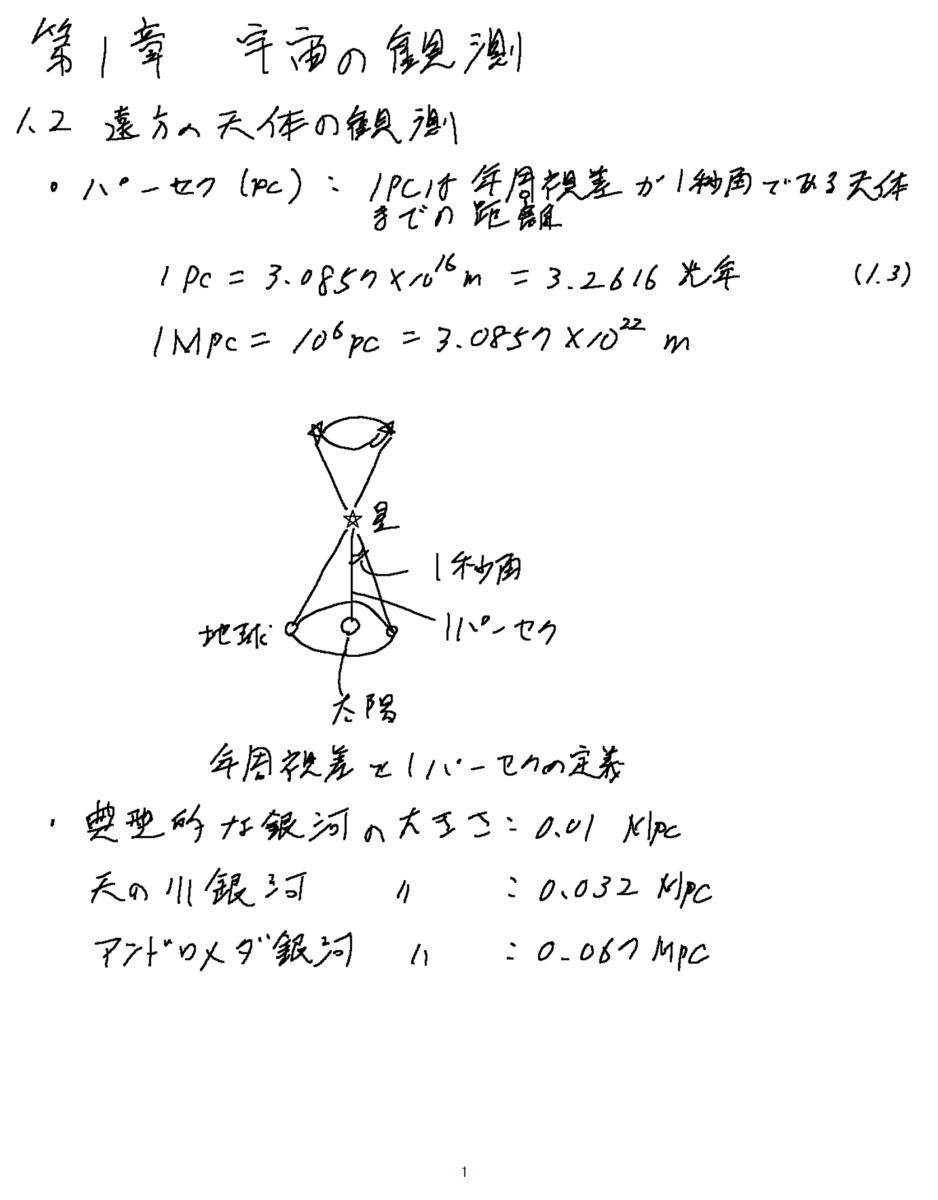 第1章 宇宙の観測
1.2 遠方の天体の観測
・パーセク(pc): 1pcは年周視差が1秒角である天体
までの距離
1pc = 3.0857×10^16 m = 3.2616 光年 (1.3)
1Mpc = 10^6 pc = 3.0857×10^22 m
星
1秒角
地球
1パーセク
太陽
年周視差と1パーセクの定義
・典型的な銀河の大きさ: 0.01 Mpc
天の川銀河 〃 : 0.032 Mpc
アンドロメダ銀河 〃 : 0.067 Mpc
1